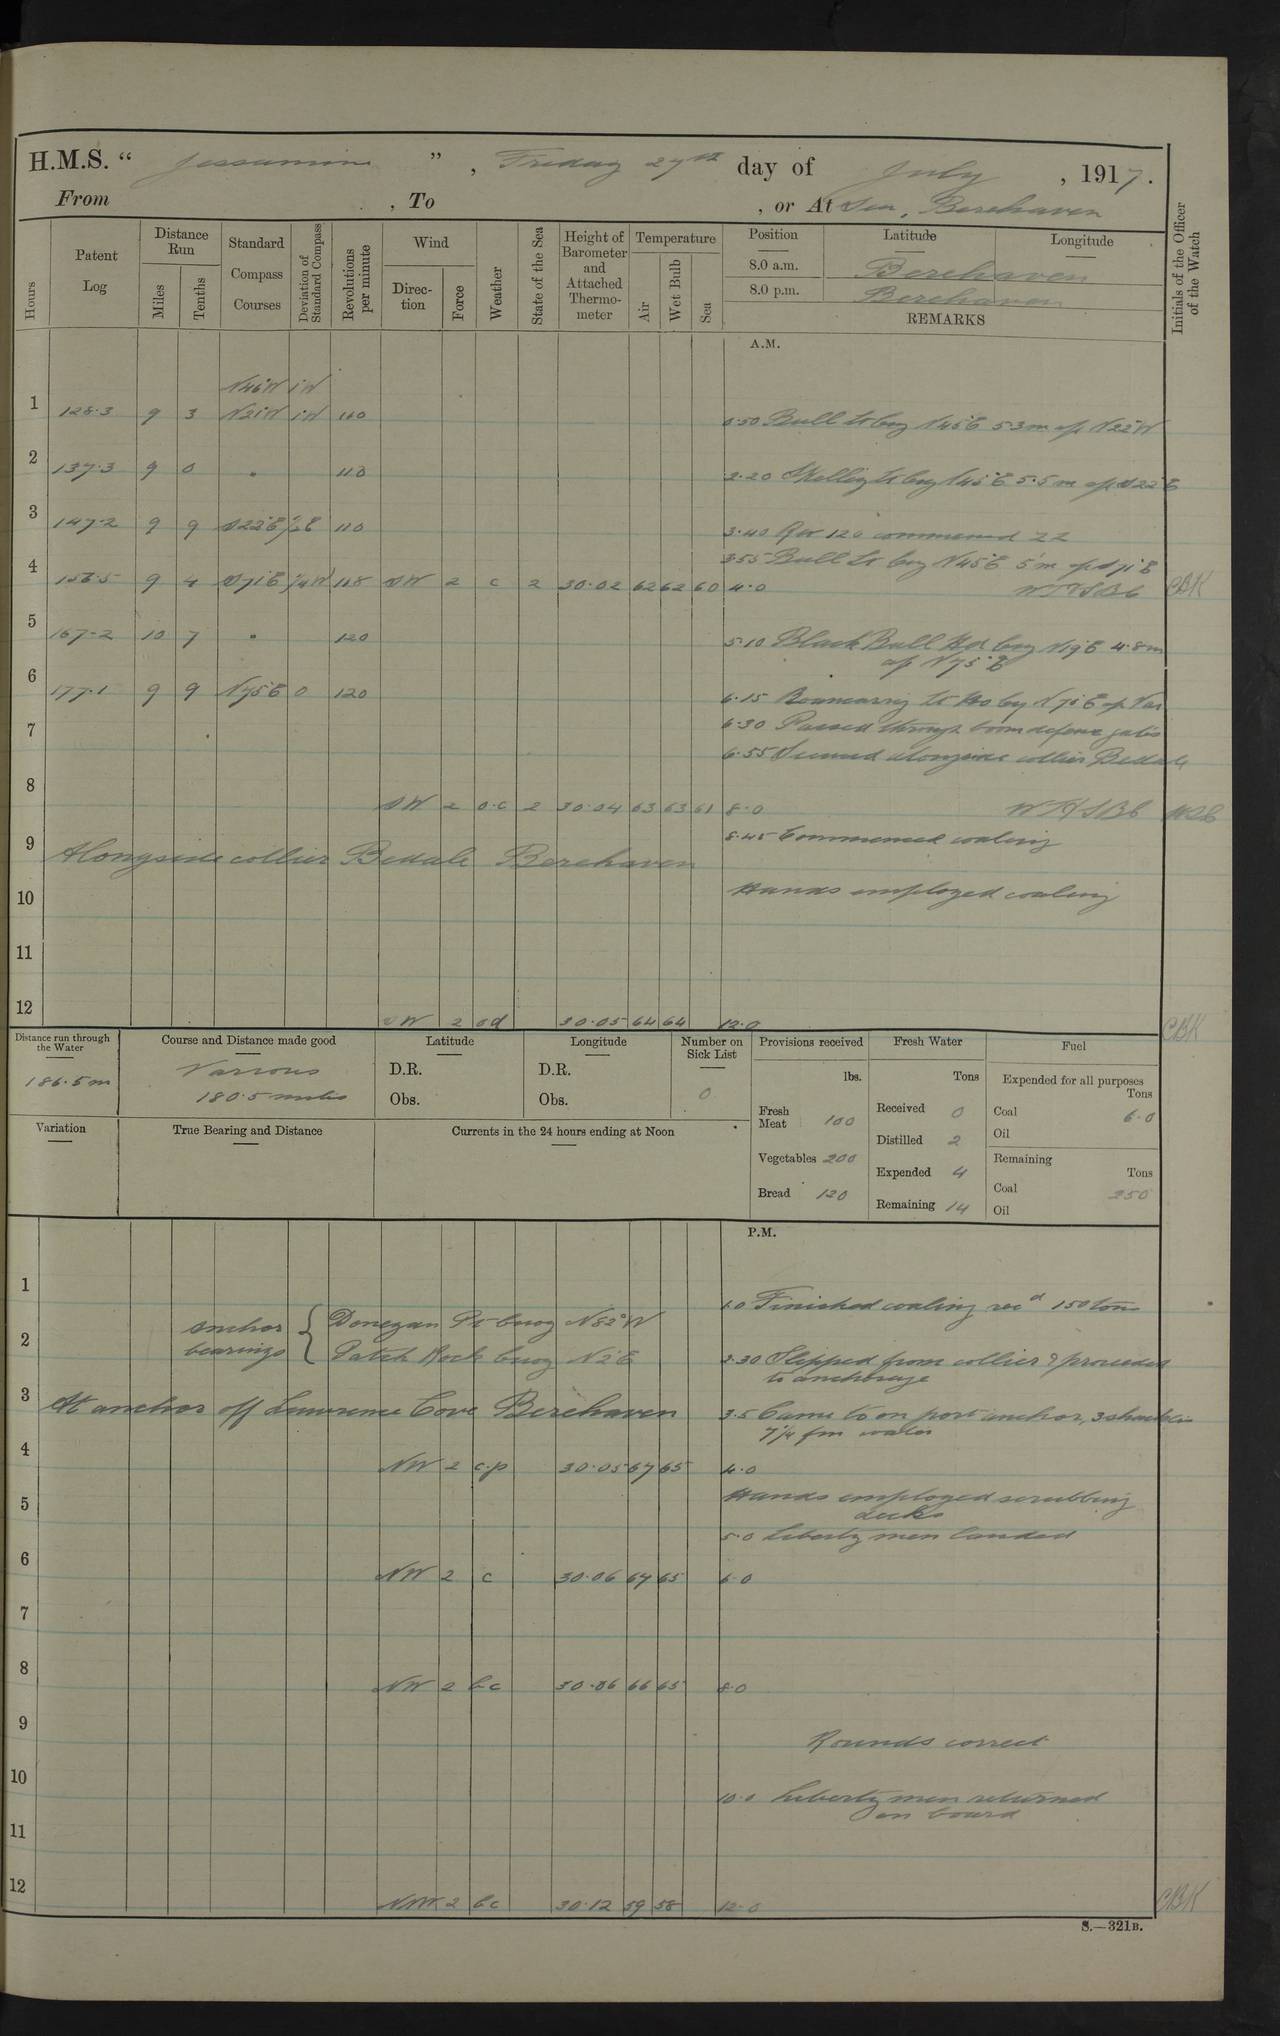 H.M.S. “ Jessamine ”, Friday 27th day of July, 1917.
From , To , or At Sea, Berehaven
Hours
Patent Log
Distance Run
Miles
Tenths
Standard Compass Courses
Deviation of Standard Compass
Revolutions per minute
Wind
Direction
Force
Weather
State of the Sea
Height of Barometer and Attached Thermometer
Temperature
Air
Wet Bulb
Sea
Position Latitude Longitude
8.0 a.m. Berehaven
8.0 p.m. Berehaven
REMARKS
Initials of the Officer of the Watch
A.M.
N46W 1W
1 128.3 9 3 N21W 1W 110 0.50 Bull Lt brg N45E 5.3m a/c N22W
2 137.3 9 0 " 110 2.20 Skellig Lt brg N45E 5.5m a/c S22E
3 147.2 9 9 S22E 110 3.40 Rev 120 commenced ZZ
3.55 Bull Lt brg N45E 5m a/c S71E
4 156.5 9 4 S71E 118 SW 2 c 2 30.02 62 62 60 4.0 CBK
5 167.2 10 7 " 120 5.10 Black Ball Hd brg N19E 4.8m
a/c N75E
6 177.1 9 9 N75E 0 120 6.15 Roancarrig Lt Ho by N70E a/c Var
6.30 Passed through boom defence gates
7
6.55 Secured alongside collier Bedale
8 SW 2 o.c 2 30.04 63 63 61 8.0
8.45 Commenced coaling
9 Alongside collier Bedale Berehaven
10 Hands employed coaling
11
12 SW 2 od 30.05 64 64 12.0 CBK
Distance run through the Water
186.5m
Course and Distance made good
Various
180.5 miles
Latitude
D.R.
Obs.
Longitude
D.R.
Obs.
Number on Sick List
0
Provisions received
lbs.
Fresh Meat 100
Vegetables 200
Bread 120
Fresh Water
Tons
Received 0
Distilled 2
Expended 4
Remaining 14
Fuel
Expended for all purposes
Tons
Coal 6.0
Oil
Remaining
Tons
Coal 250
Oil
Variation
True Bearing and Distance
Currents in the 24 hours ending at Noon
P.M.
1 1.0 Finished coaling recd 150 tons
anchor bearings { Donegan Pt buoy N82°W
2 Patch Rock buoy N2°E 2.30 Slipped from collier & proceeded
to anchorage
3 At anchor off Lawrence Cove Berehaven 3.5 Came to on port anchor, 3 shackles
7¼ fm water
4 NW 2 c.p 30.05 67 65 4.0
Hands employed scrubbing
decks
5
5.0 Liberty men landed
6 NW 2 c 30.06 67 65 6.0
7
8 NW 2 bc 30.06 66 65 8.0
9 Rounds correct
10 10.0 Liberty men returned
on board
11
12 NW 2 bc 30.12 59 58 12.0 CBK
S.—321B.